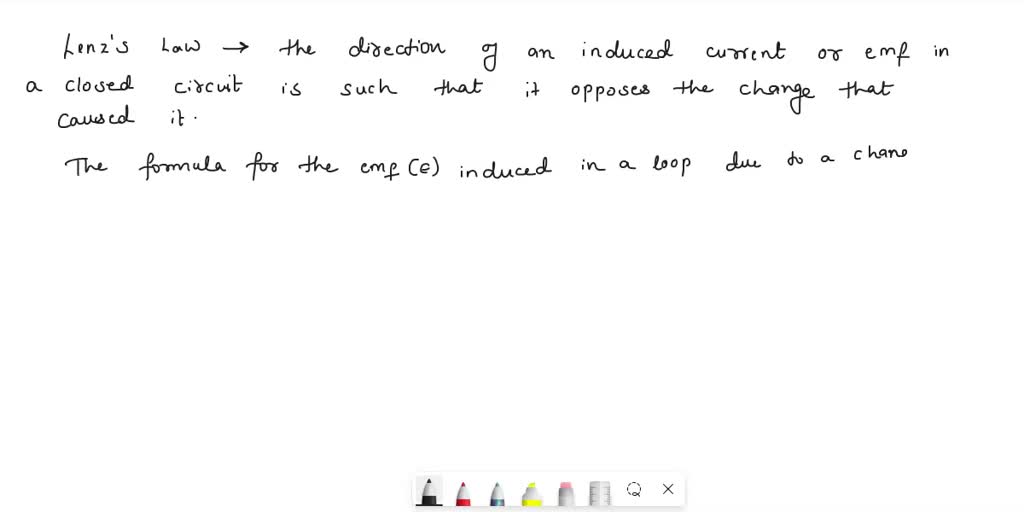 Lenz's Law → the direction of an induced current or emf in
a closed circuit is such that it opposes the change that
caused it.
The formula for the emf (e) induced in a loop due to a chane